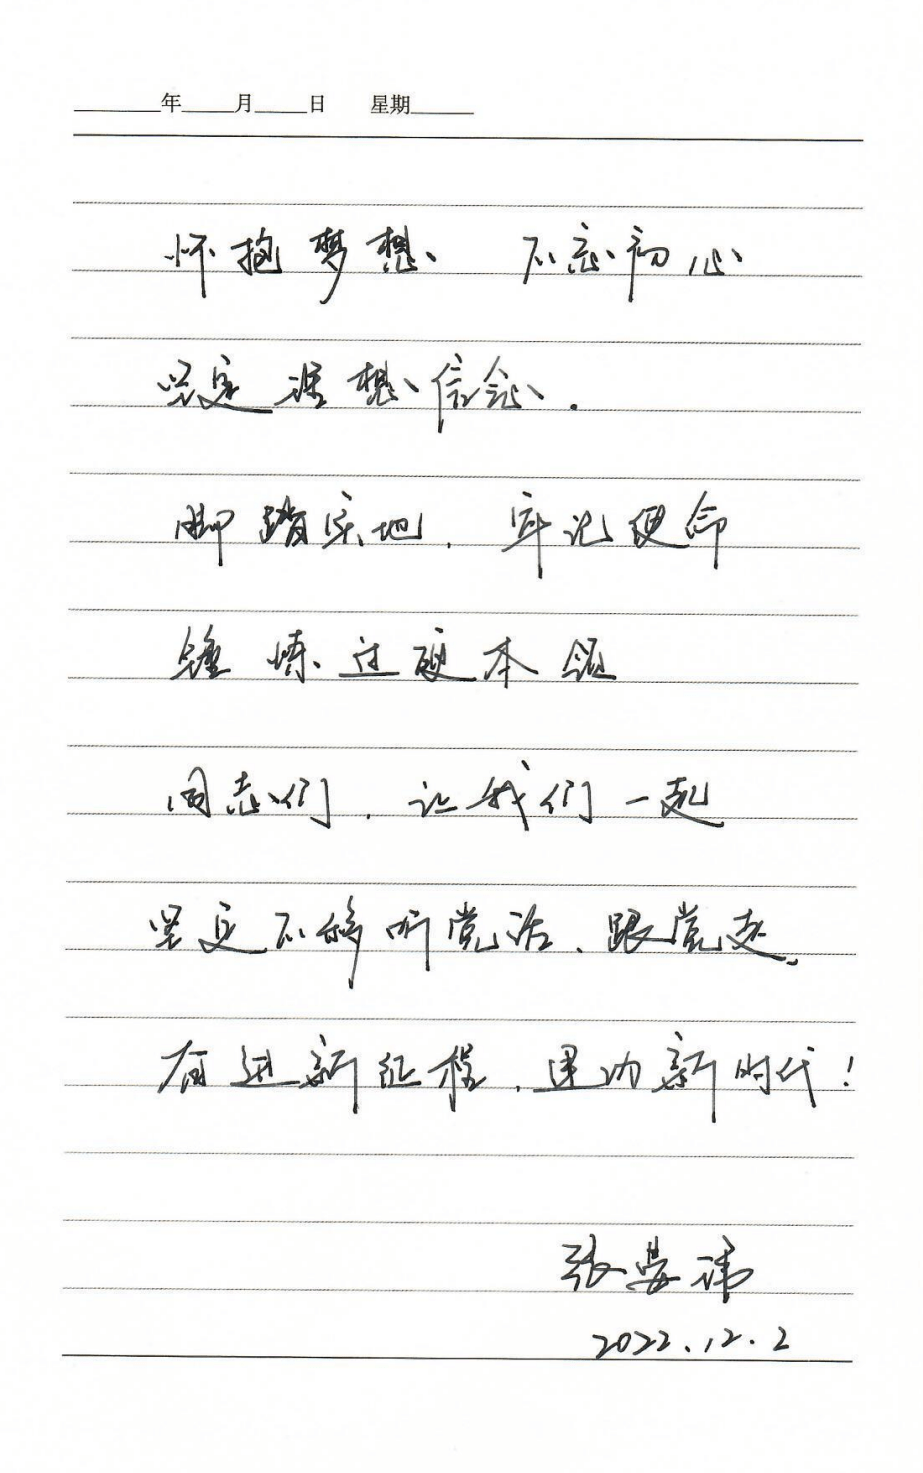 ____年____月____日 星期____
怀抱梦想 不忘初心
坚定理想信念.
脚踏实地,牢记使命
锤炼过硬本领
同志们,让我们一起
坚定不移听党话、跟党走、
奋进新征程,建功新时代!
张
2022.12.2